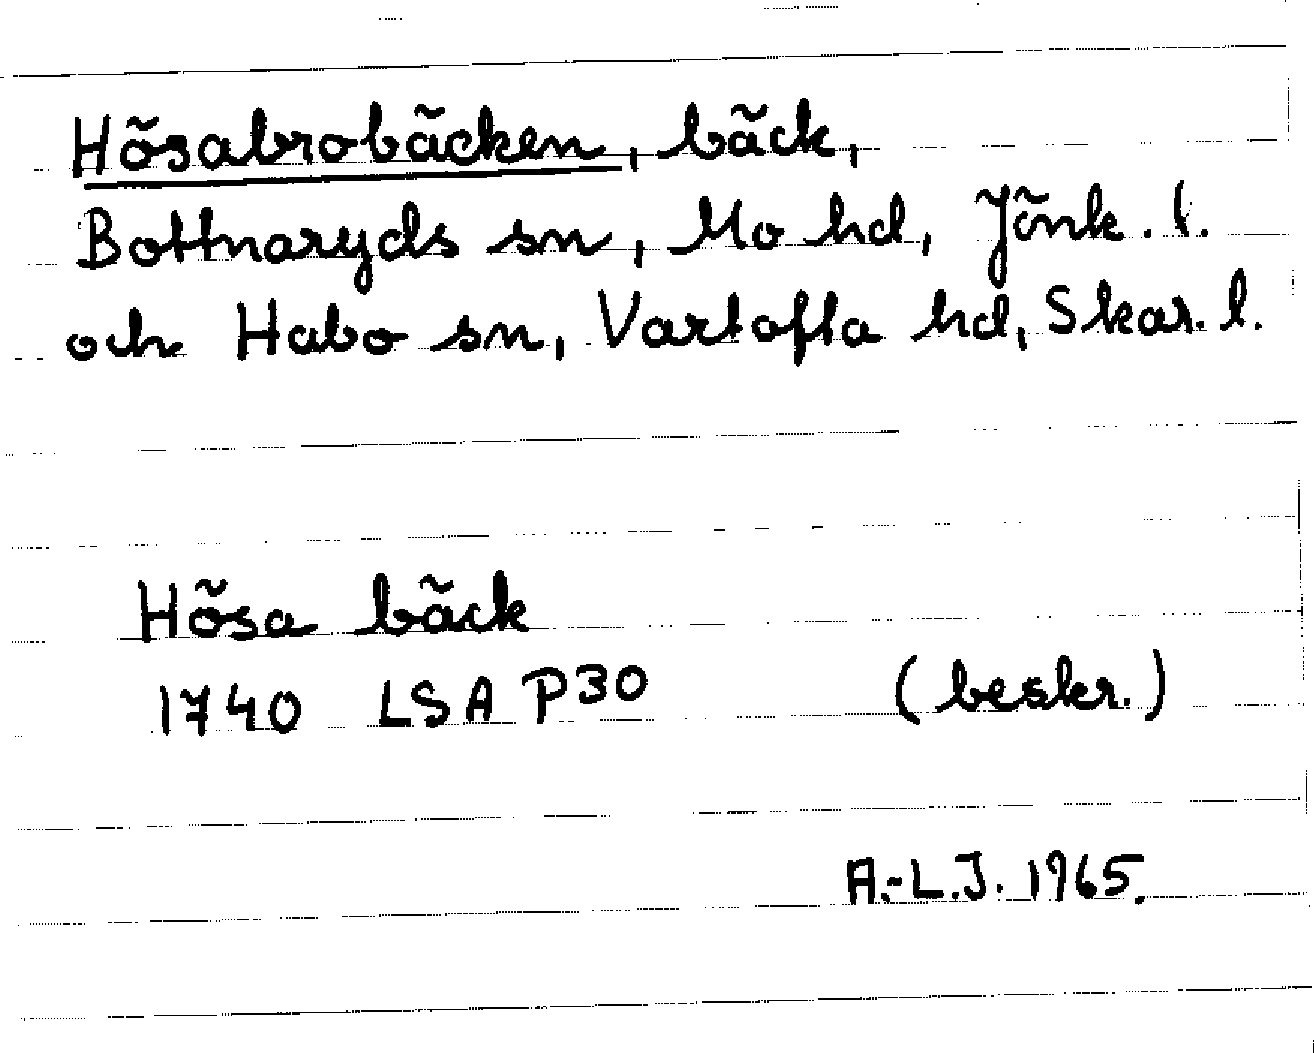 Hösabrobäcken, bäck,
Bottnaryds sn, Mo hd, Jönk. l.
och Habo sn, Vartofta hd, Skar. l.
Hösa bäck
1740 LSA P30 (beskr.)
A.-L.J. 1965.